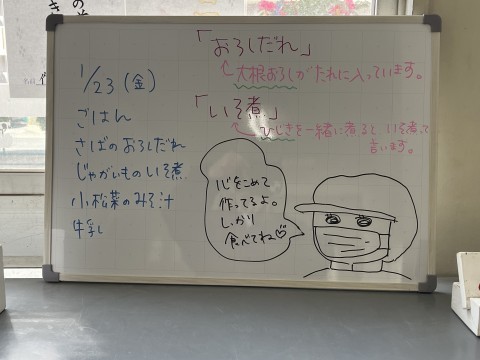 1/23(金)
ごはん
さばのおろしだれ
じゃがいものいそ煮
小松菜のみそ汁
牛乳
「おろしだれ」
大根おろしがたれに入っています。
「いそ煮」
ひじきを一緒に煮ると いそ煮って
言います。
心をこめて
作ってるよ。
しっかり
食べてね♡